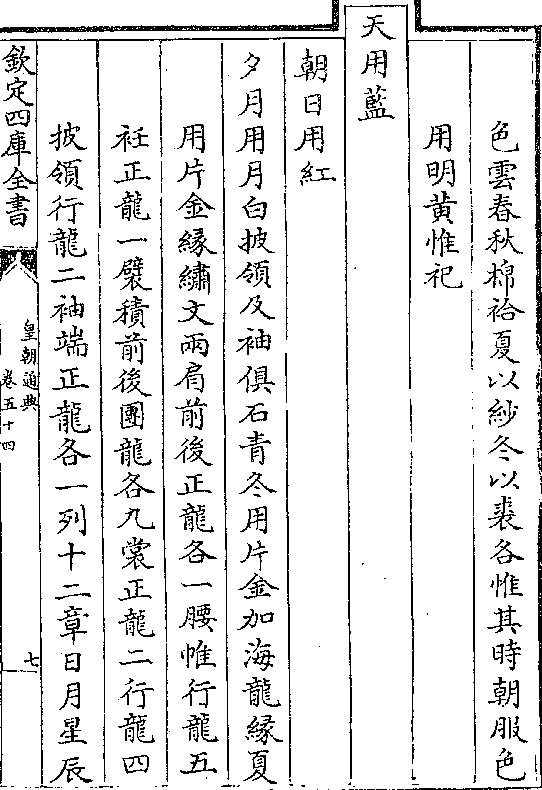 色雲春秋棉袷夏以紗冬以裘各惟其時朝服色
用明黃惟祀
天用藍
朝日用紅
夕月用月白披領及袖俱石青冬用片金加海龍縁夏
用片金縁繡文兩肩前後正龍各一腰帷行龍五
衽正龍一襞積前後團龍各九裳正龍二行龍四
披領行龍二袖端正龍各一列十二章日月星辰
欽定四庫全書
皇朝通典
卷五十四
七